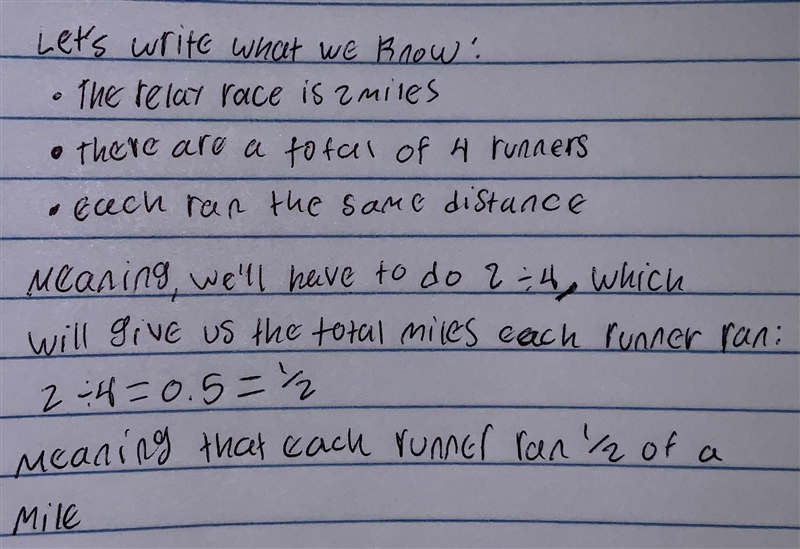 Let's write what we know:
• The relay race is 2 miles
• there are a total of 4 runners
• each ran the same distance
Meaning, we'll have to do 2 ÷ 4, which
will give us the total miles each runner ran:
2 ÷ 4 = 0.5 = 1/2
Meaning that each runner ran 1/2 of a
mile